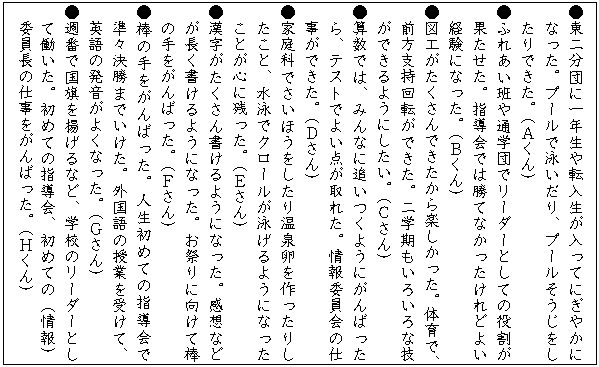 ●東二分団に一年生や転入生が入ってにぎやかに
なった。プールで泳いだり、プールそうじをし
たりできた。（Aくん）
●ふれあい班や通学団でリーダーとしての役割が
果たせた。指導会では勝てなかったけれどよい
経験になった。（Bくん）
●図工がたくさんできたから楽しかった。体育で、
前方支持回転ができた。二学期もいろいろな技
ができるようにしたい。（Cさん）
●算数では、みんなに追いつくようにがんばった
ら、テストでよい点が取れた。情報委員会の仕
事ができた。（Dさん）
●家庭科でさいほうをしたり温泉卵を作ったりし
たこと、水泳でクロールが泳げるようになった
ことが心に残った。（Eさん）
●漢字がたくさん書けるようになった。感想など
が長く書けるようになった。お祭りに向けて棒
の手をがんばった。（Fさん）
●棒の手をがんばった。人生初めての指導会で
準々決勝までいけた。外国語の授業を受けて、
英語の発音がよくなった。（Gさん）
●週番で国旗を揚げるなど、学校のリーダーとし
て働いた。初めての指導会、初めての（情報）
委員長の仕事をがんばった。（Hくん）